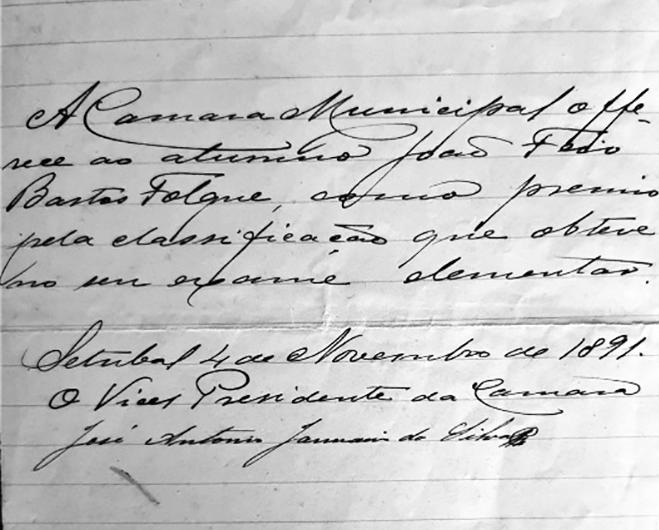 A Camara Municipal offe-
rece ao alumno João Feio
Bastos Folque, como premio
pela classificação que obteve
no seu exame elementar.
Setubal 4 de Novembro de 1891.
O Vice Presidente da Camara
José Antonio Januario da Silva